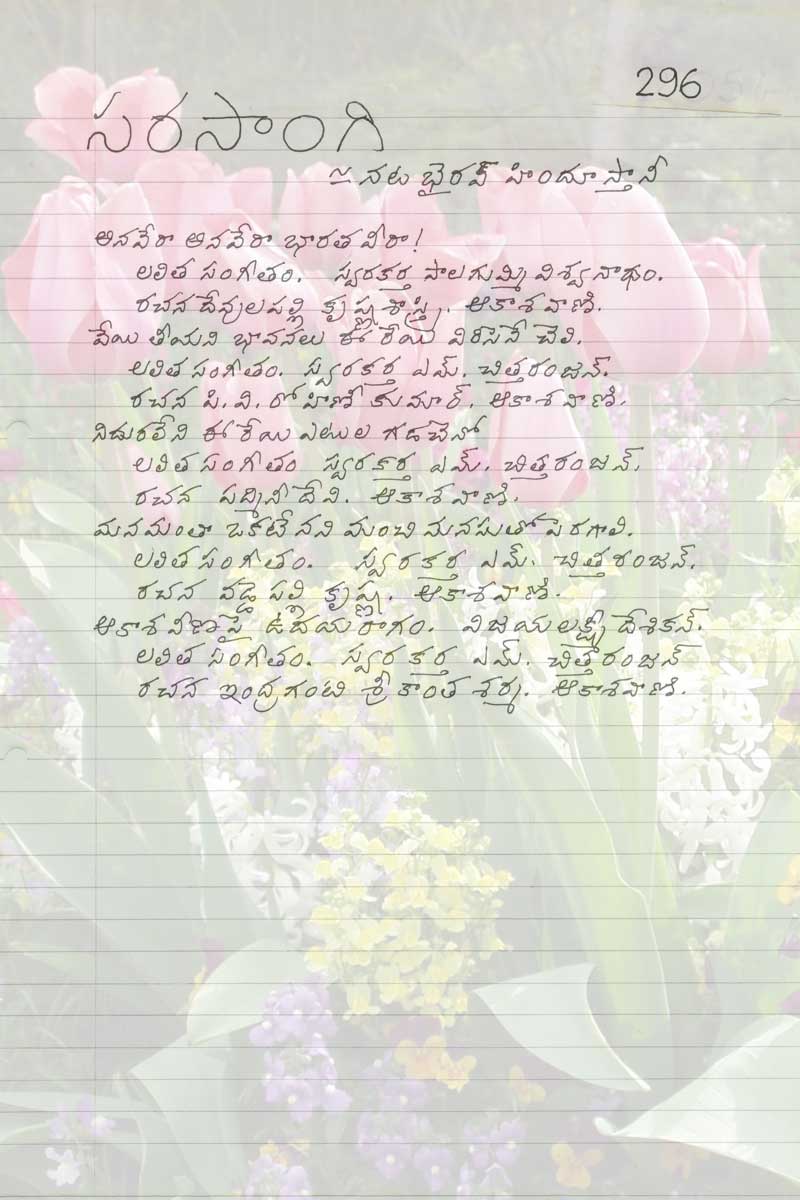 296
సరసాంగి
~ నట భైరవ్ హిందూస్తానీ
అనవేరా అనవేరా భారత వీరా!
లలిత సంగీతం. స్వరకర్త సాలగుమ్మి విశ్వనాథం.
రచన దేవులపల్లి కృష్ణశాస్త్రి. ఆకాశవాణి.
వేయి తీయని భావనలు ఈ రేయి విరిసెనే చెలి.
లలిత సంగీతం. స్వరకర్త ఎమ్. చిత్తరంజన్.
రచన పి. వి. రోహిణీ కుమార్. ఆకాశవాణి.
నిదురలేని ఈ రేయి ఎటుల గడచెనో
లలిత సంగీతం స్వరకర్త ఎమ్. చిత్తరంజన్.
రచన పద్మినీ దేవి. ఆకాశవాణి.
మనమంతా ఒకటేనని మంచి మనసుతో పెరగాలి.
లలిత సంగీతం. స్వరకర్త ఎమ్. చిత్తరంజన్.
రచన వడ్డెపల్లి కృష్ణ. ఆకాశవాణి.
ఆకాశవీణపై ఉదయరాగం. విజయలక్ష్మీ దేశికన్.
లలిత సంగీతం. స్వరకర్త ఎమ్. చిత్తరంజన్
రచన ఇంద్రగంటి శ్రీకాంత శర్మ. ఆకాశవాణి.